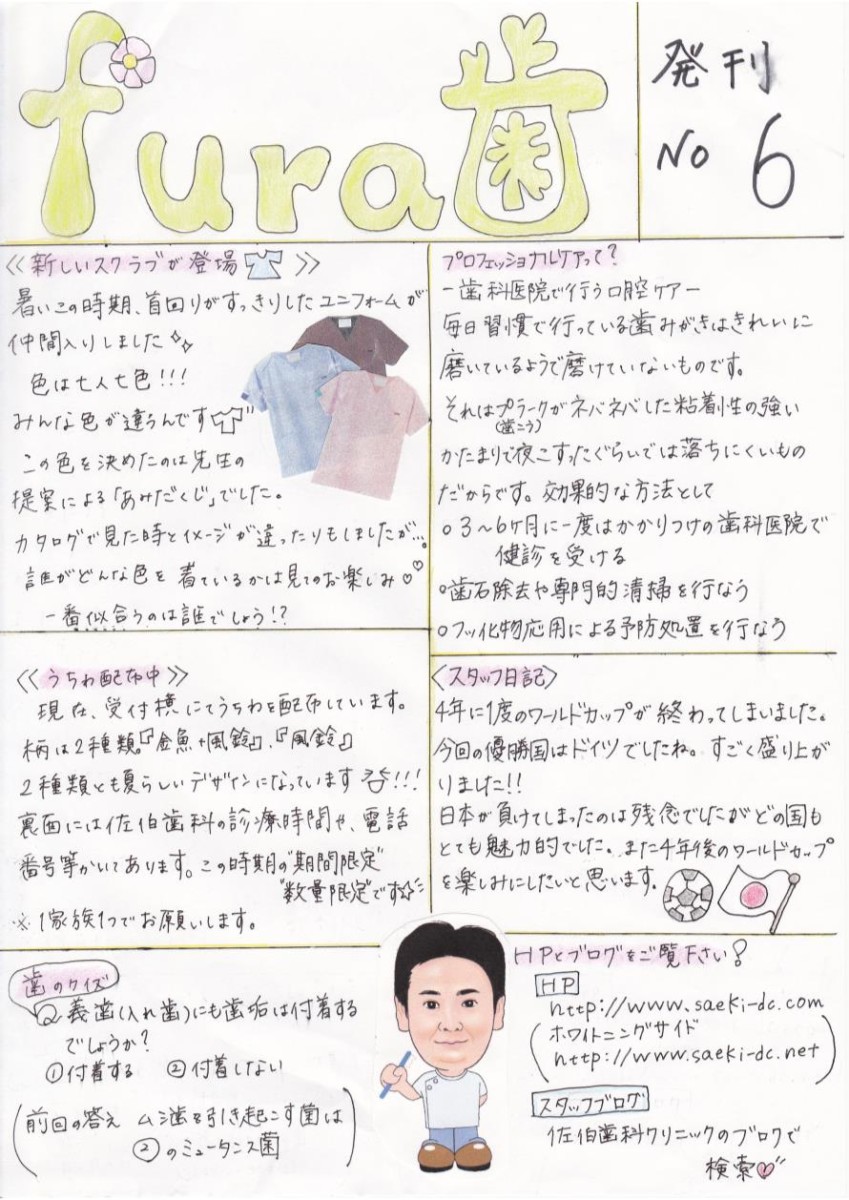 fura歯
発刊
No 6
《新しいスクラブが登場》
暑いこの時期、首回りがすっきりしたユニフォームが
仲間入りしました
色は七人七色!!!
みんな色が違うんです
この色を決めたのは先生の
提案による「あみだくじ」でした。
カタログで見た時とイメージが違ったりもしましたが…。
誰がどんな色を着ているかは見てのお楽しみ♡♡
一番似合うのは誰でしょう!?
プロフェッショナルケアって?
ー歯科医院で行う口腔ケアー
毎日習慣で行っている歯みがきはきれいに
磨いているようで磨けていないものです。
それはプラークがネバネバした粘着性の強い
(歯こう)
かたまりで夜こすったぐらいでは落ちにくいもの
だからです。効果的な方法として
○3〜6ケ月に一度はかかりつけの歯科医院で
健診を受ける
○歯石除去や専門的清掃を行なう
○フッ化物応用による予防処置を行なう
《うちわ配布中》
現在、受付横にてうちわを配布しています。
柄は2種類『金魚+風鈴』、『風鈴』
2種類とも夏らしいデザインになっています!!!
裏面には佐伯歯科の診療時間や、電話
番号等かいてあります。この時期の"期間限定"
"数量限定"です☆
※1家族1つでお願いします。
〈スタッフ日記〉
4年に1度のワールドカップが終わってしまいました。
今回の優勝国はドイツでしたね。すごく盛り上が
りました!!
日本が負けてしまったのは残念でしたがどの国も
とても魅力的でした。また4年後のワールドカップ
を楽しみにしたいと思います。
歯のクイズ
Q.義歯(入れ歯)にも歯垢は付着する
でしょうか?
①付着する ②付着しない
(前回の答え ムシ歯を引き起こす菌は
②のミュータンス菌)
HPとブログをご覧下さい!
HP
http://www.saeki-dc.com
(ホワイトニングサイド
http://www.saeki-dc.net)
スタッフブログ
佐伯歯科クリニックのブログで
検索♡